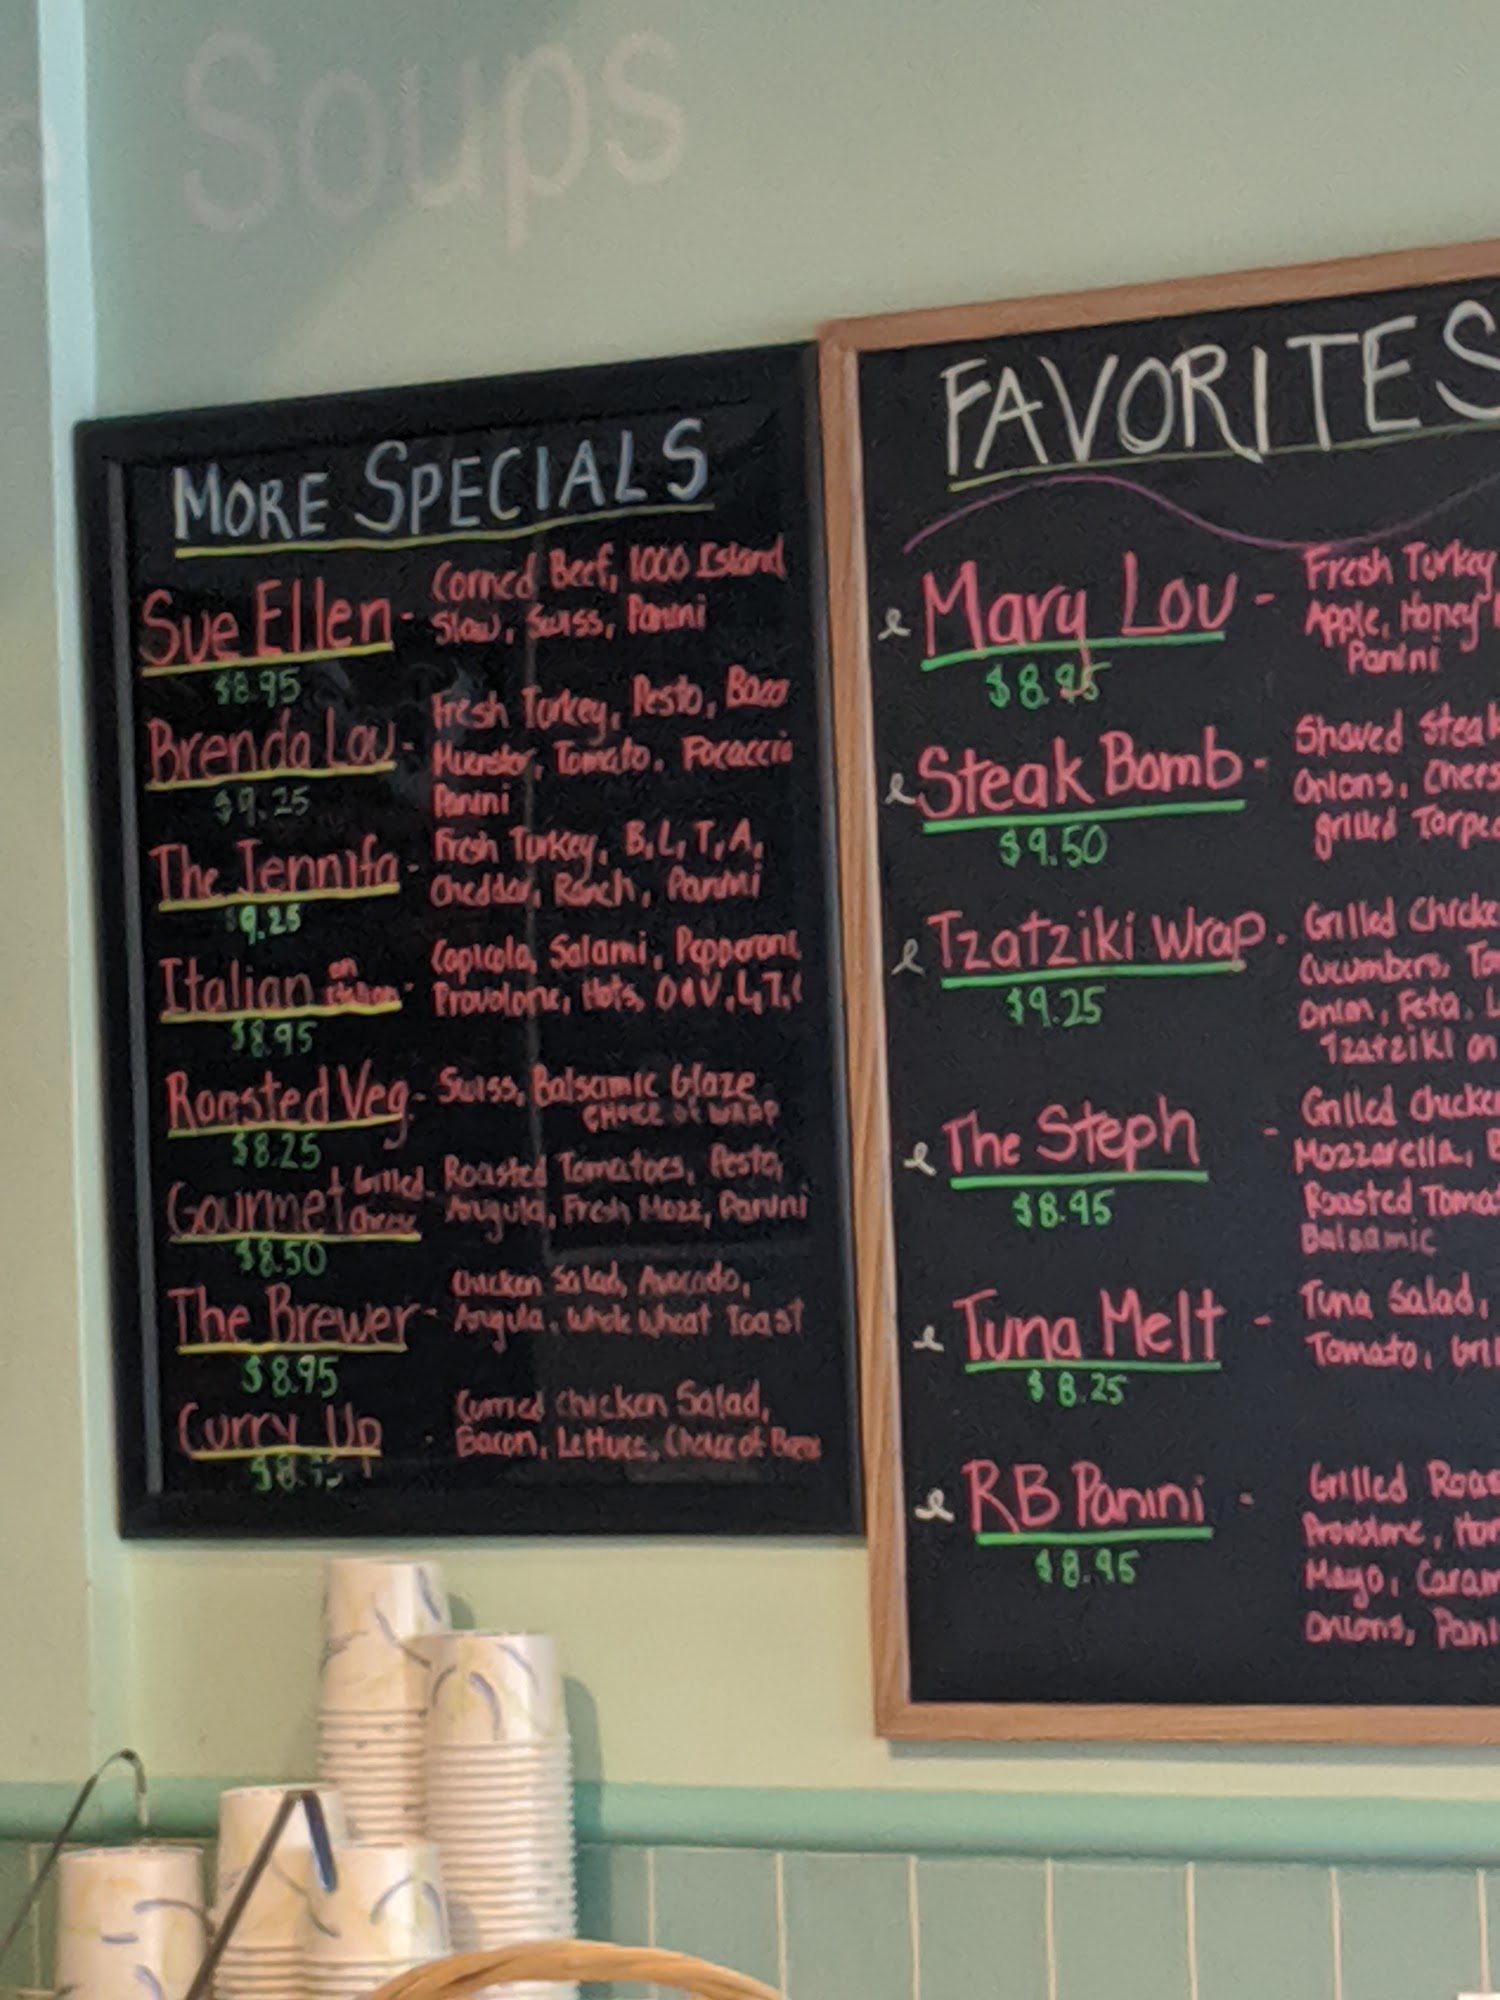 Soups
MORE SPECIALS
Sue Ellen - Corned Beef, 1000 Island
Slaw, Swiss, Panini
$8.95
Brenda Lou - Fresh Turkey, Pesto, Bacon
Muenster, Tomato, Focaccia
Panini
$9.25
The Jennifa - Fresh Turkey, B, L, T, A,
Cheddar, Ranch, Panini
$9.25
Italian on Italian - Capicola, Salami, Pepperoni,
Provolone, Hots, O&V, L, T,
$8.95
Roasted Veg - Swiss, Balsamic Glaze
CHOICE OF WRAP
$8.25
Gourmet Grilled Cheese - Roasted Tomatoes, Pesto,
Arugula, Fresh Mozz, Panini
$8.50
The Brewer - Chicken Salad, Avocado,
Arugula, Whole Wheat Toast
$8.95
Curry Up - Curried Chicken Salad,
Bacon, Lettuce, Choice of
FAVORITES
Mary Lou - Fresh Turkey
Apple, Honey
Panini
$8.95
Steak Bomb - Shaved Steak
Onions, Chees
grilled Torpe
$9.50
Tzatziki Wrap - Grilled Chicke
Cucumbers, To
Onion, Feta, L
Tzatziki on
$9.25
The Steph - Grilled Chicke
Mozzarella,
Roasted Tomat
Balsamic
$8.95
Tuna Melt - Tuna Salad,
Tomato, Gril
$8.25
RB Panini - Grilled Roas
Provolone, Hor
Mayo, Caram
Onions, Pani
$8.95